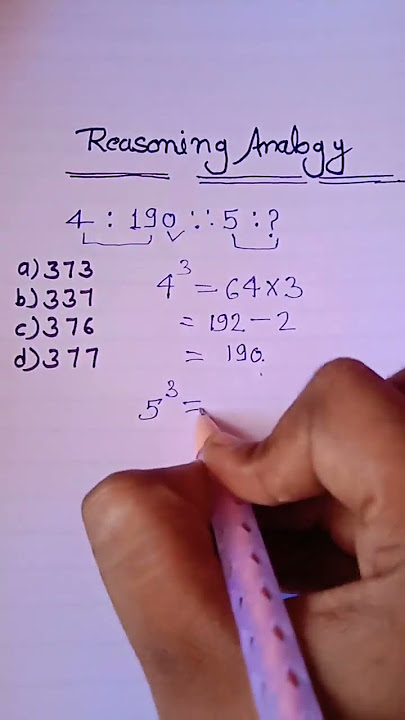 Reasoning Analogy
4 : 190 :: 5 : ?
a) 373
b) 337
c) 376
d) 377
4³ = 64 × 3
= 192 - 2
= 190.
5³ =